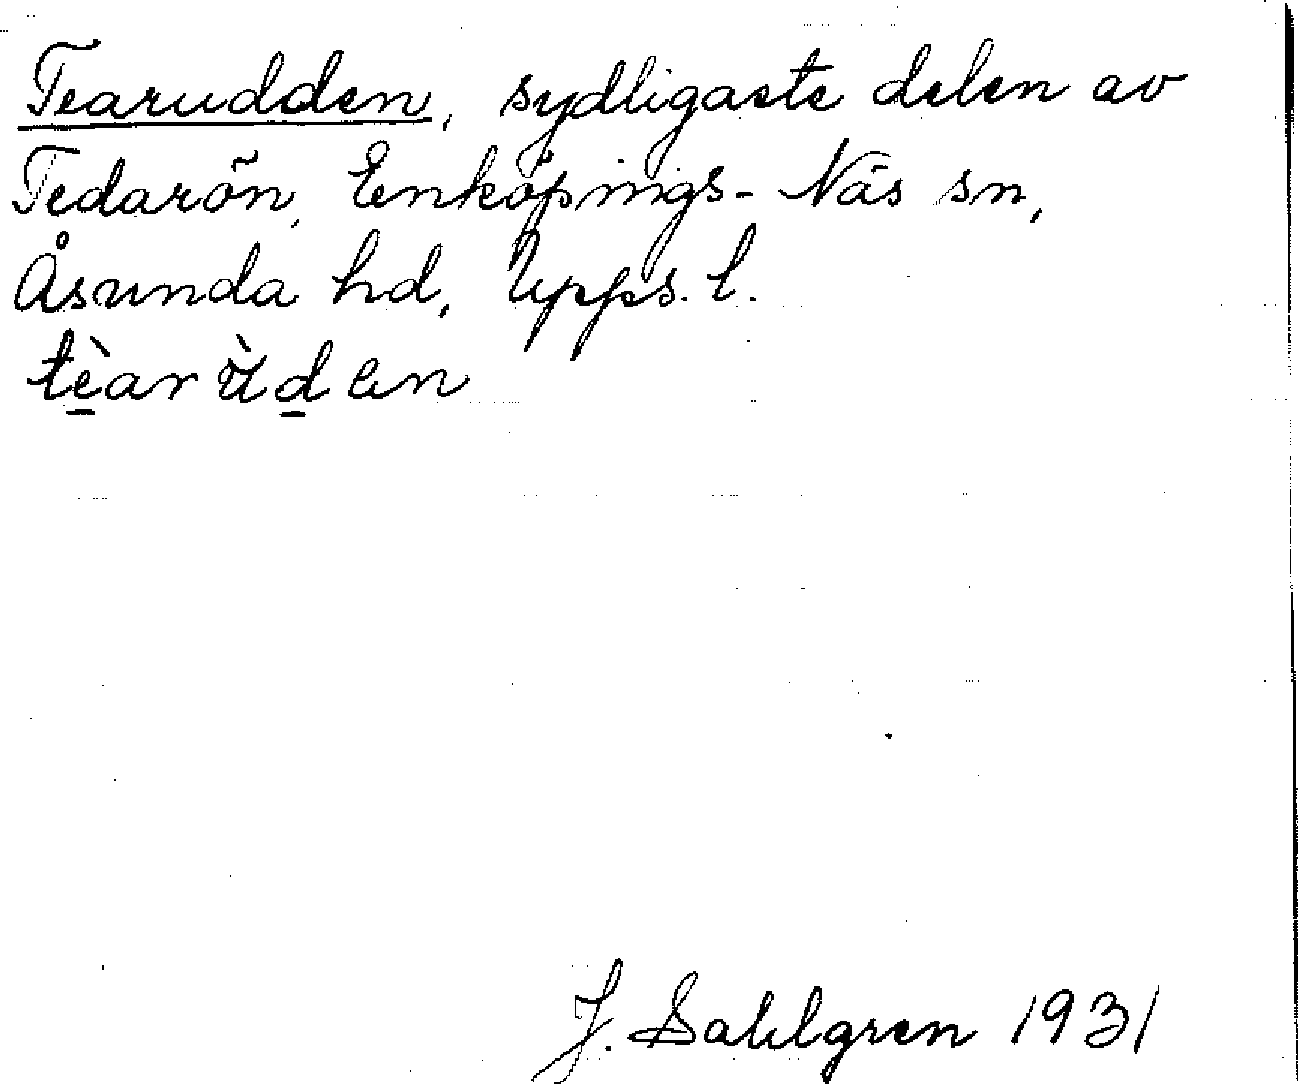 Tearudden, sydligaste delen av
Tedarön, Enköpings-Näs sn,
Åsunda hd, Upps. l.
tè̠arùd̠en
J. Sahlgren 1931